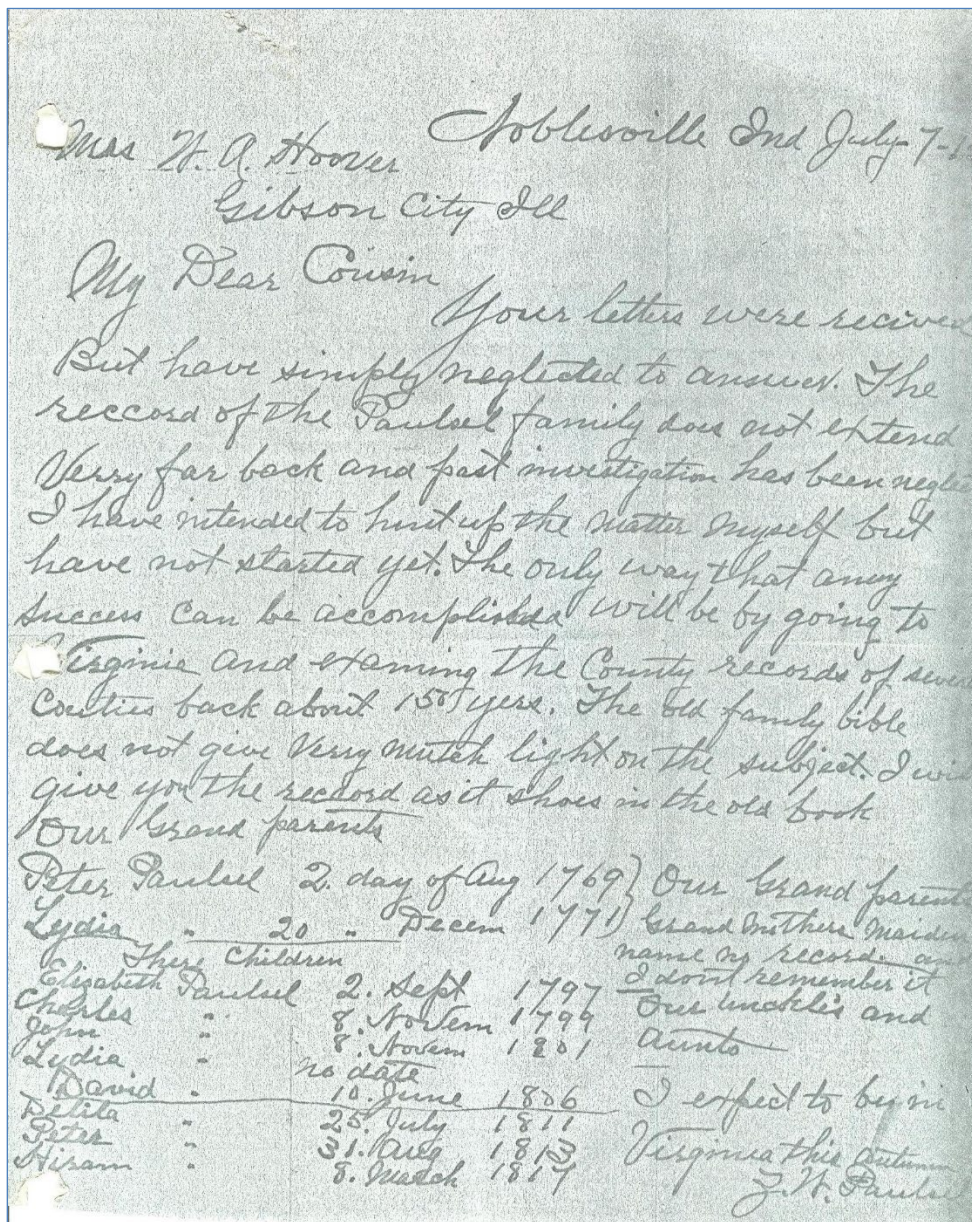 Noblesville Ind July-7-
Mrs W. A. Hoover
Gibson City Ill
My Dear Cousin
Your letters were recived
But have simply neglected to answer. The
reccord of the Paulsel family does not extend
Verry far back and past investigation has been neglec
I have intended to hunt up the matter myself but
have not started yet. The only way that aney
success can be accomplished will be by going to
Virginia and examing the County records of sever
Couties back about 150 yers. The old family bible
does not give Verry mutch light on the subject. I will
give you the reccord as it shoes in the old book
Our Grand parents
Peter Paulsel 2. day of Aug 1769) Our Grand parents
Lydia " 20 " Decem 1771) Grand Mothers Maiden
name no record and
There Children
I dont remember it
Elizabeth Paulsel 2. Sept 1797
Our Unckles and
Charles " 8. Novem 1799
Aunts
John " 8. Novem 1801
Lydia " no date
David " 10. June 1806
I expect to be in
Delila " 25. July 1811
Peter " 31. Aug 1813
Virginia this autumn
Hiram " 8. March 1817
Z. W. Paulsel